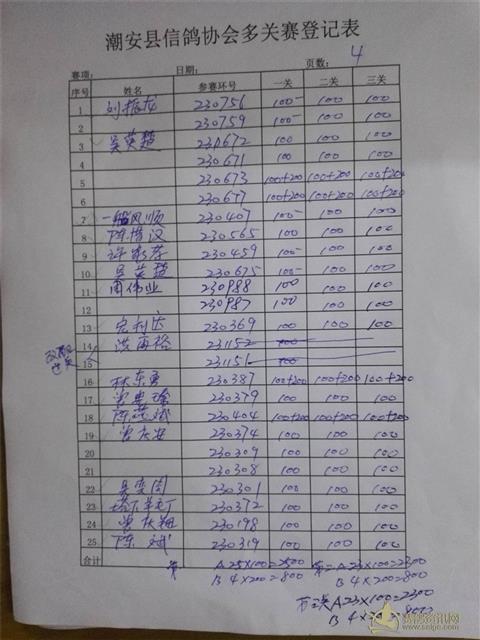 潮安县信鸽协会多关赛登记表
赛项： 日期： 页数： 4
序号 姓名 参赛环号 一关 二关 三关
1 刘振龙 230756 100 100 100
2 230759 100 100 100
3 吴英楚 230672 100 100 100
4 230671 100 100 100
5 230673 100+200 100+200 100+200
6 230677 100+200 100+200 100+200
7 一帆风顺 230407 100 100 100
8 陈惜汉 230565 100 100 100
9 230459 100 100 100
10 吴英楚 230675 100 100 100
11 周伟业 230988 100 100 100
12 230987 100 100 100
13 宏利达 230369 100 100 100
14 洪再格 231152 100
15 231151 100
16 林东勇 230387 100+200 100+200 100+200
17 230379 100 100 100
18 230404 100+200 100+200 100+200
19 曾庆安 230374 100 100 100
20 230309 100 100 100
21 230308 100 100 100
22 吴奕周 230301 100 100 100
23 230372 100 100 100
24 曾庆翔 230198 100 100 100
25 陈斌 230319 100 100 100
合计 第一 A 25×100=2500 第二 A 23×100=2300
B 4×200=800 B 4×200=800
A 23×100=2300
B 4×200=800
www.snipc.com